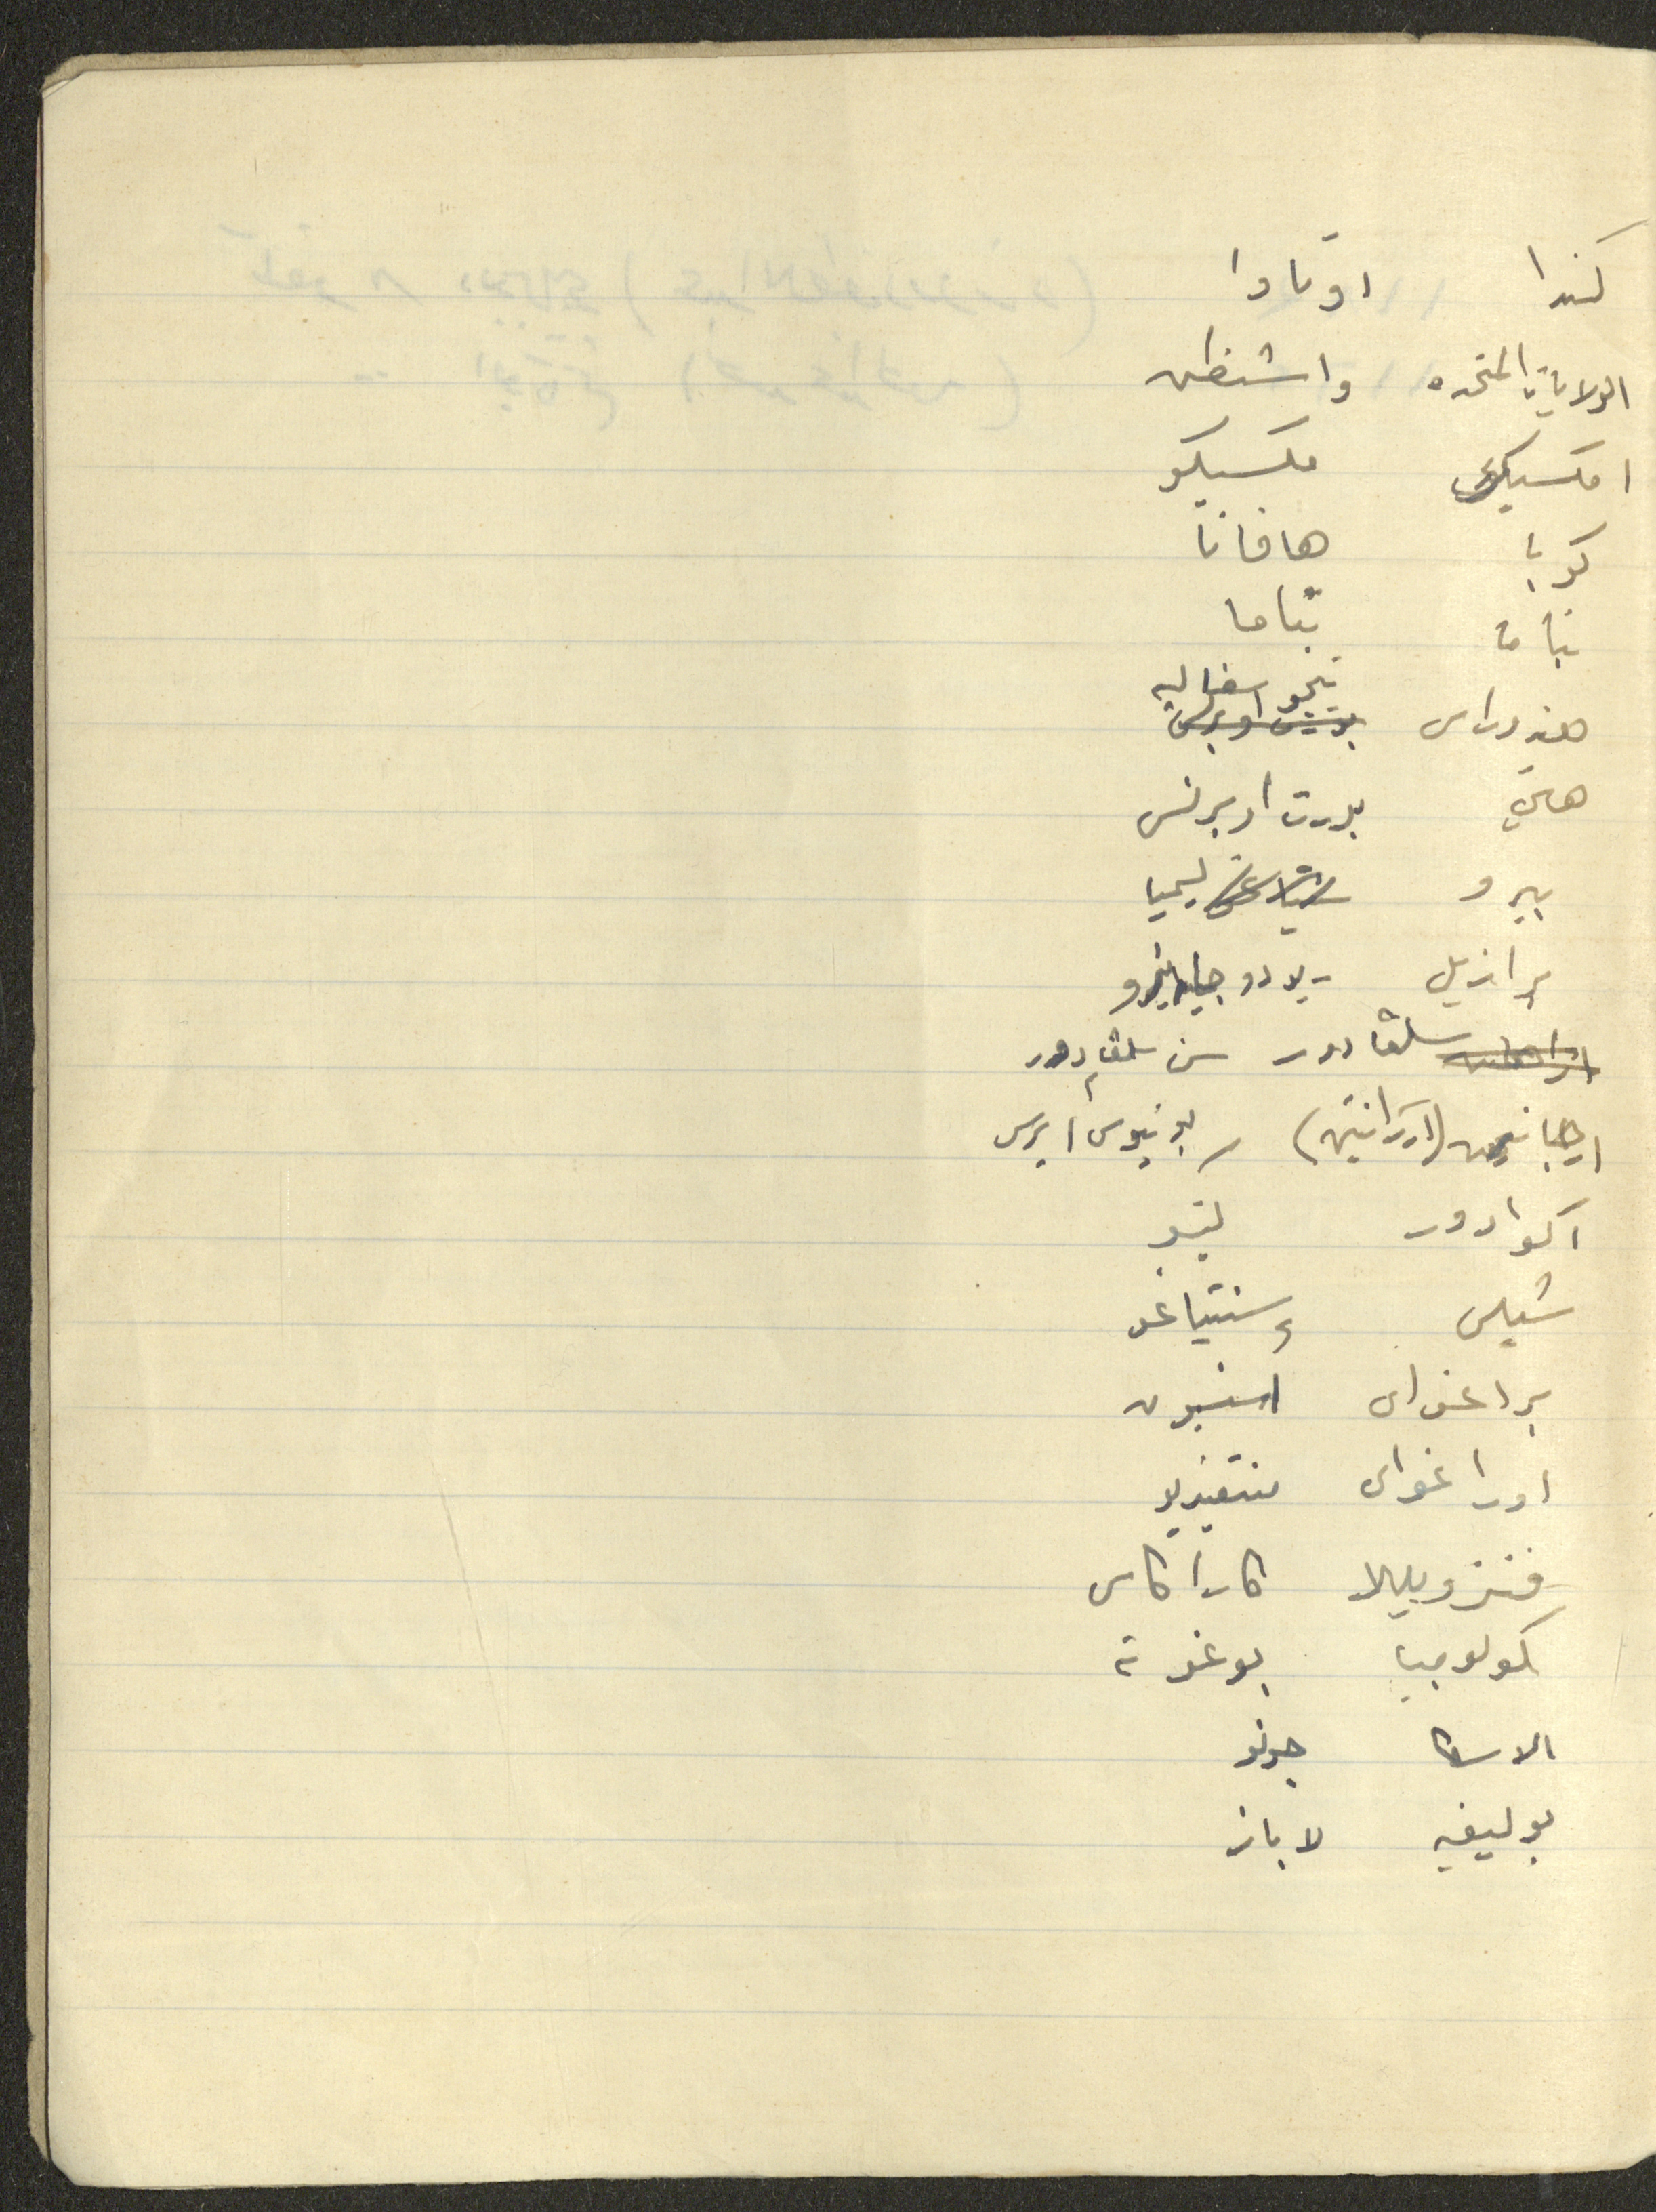 كندا اوتاوا
الولايات المتحده واشنطن
امكسيك مكسيكو
كوبا هافانا
بناما بناما
هندوراس تيجو سغالبه
هتي بورت او برنس
بيرو ليميا
برازيل ريو دو جانيرو
سلفادور سن سلفادور
ارجانتين (ارژانتين) بونيوس ايرس
اكوادور
شيلي سنتياغو
براغواى اسنسيون
اوراغواى منتفيديو
فنزويلا كاراكاس
كولومبيا بوغوته
الاسكا جونو
بوليفيه لا باز